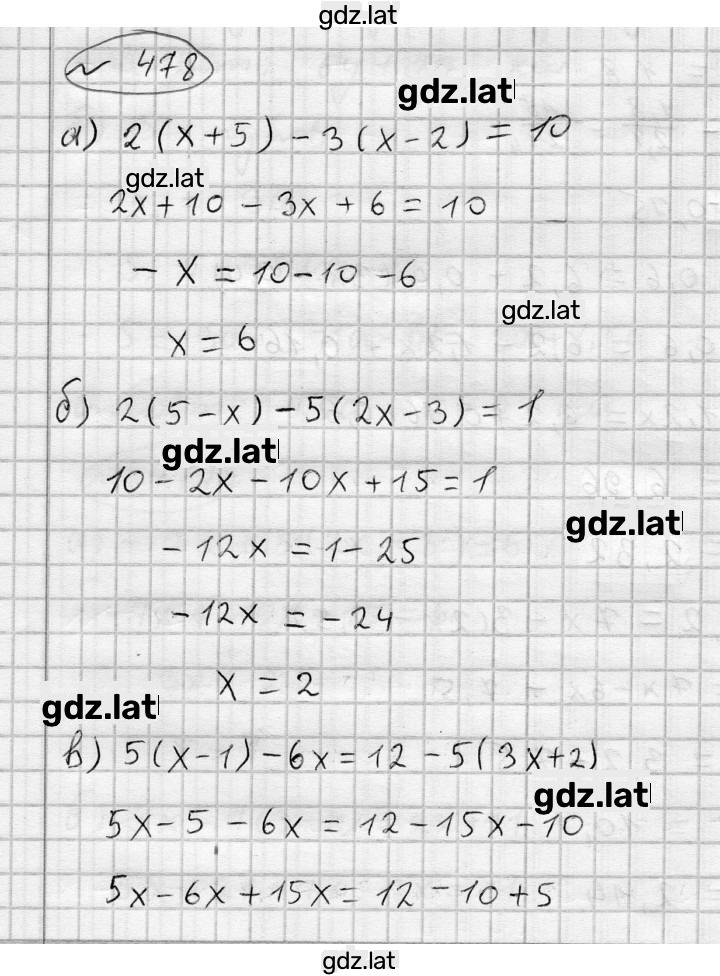 gdz.lat
~ 478
gdz.lat
а) 2(x+5) - 3(x-2) = 10
gdz.lat
2x+10 - 3x + 6 = 10
- x = 10-10 -6
gdz.lat
x = 6
б) 2(5-x) - 5(2x-3) = 1
gdz.lat
10 - 2x - 10x + 15 = 1
gdz.lat
-12x = 1 - 25
-12x = -24
x = 2
gdz.lat
в) 5(x-1) - 6x = 12 - 5(3x+2)
gdz.lat
5x-5 - 6x = 12-15x-10
5x-6x+15x = 12-10+5
gdz.lat